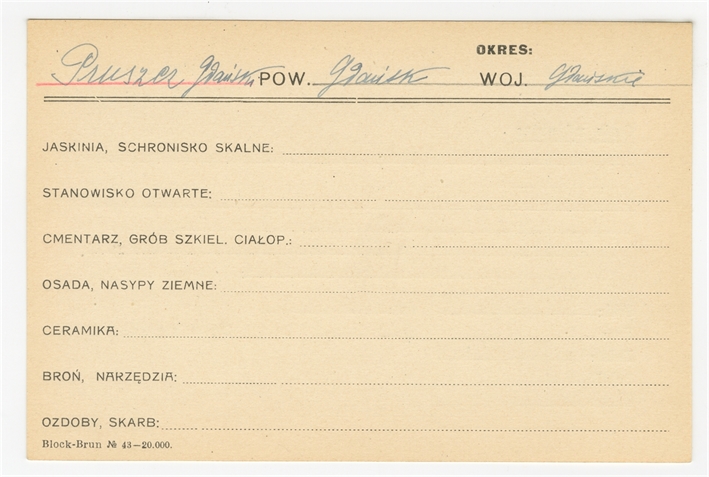 OKRES:
Pruszcz Gdański POW. Gdańsk WOJ. Gdańskie
JASKINIA, SCHRONISKO SKALNE:
STANOWISKO OTWARTE:
CMENTARZ, GRÓB SZKIEL. CIAŁOP.:
OSADA, NASYPY ZIEMNE:
CERAMIKA:
BROŃ, NARZĘDZIA:
OZDOBY, SKARB:
Block-Brun № 43—20.000.